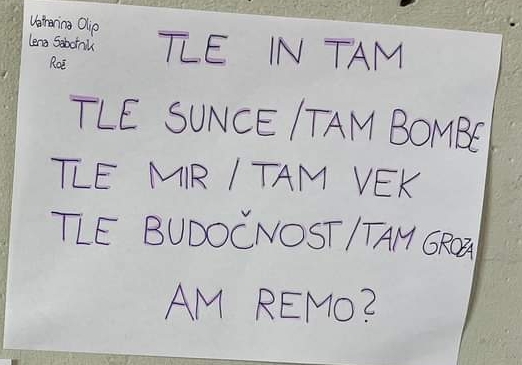 Katharina Olip
Lena Sabotnik
Rož
TLE IN TAM
TLE SUNCE / TAM BOMBE
TLE MIR / TAM VEK
TLE BUDOČNOST / TAM GROZA
AM REMO?